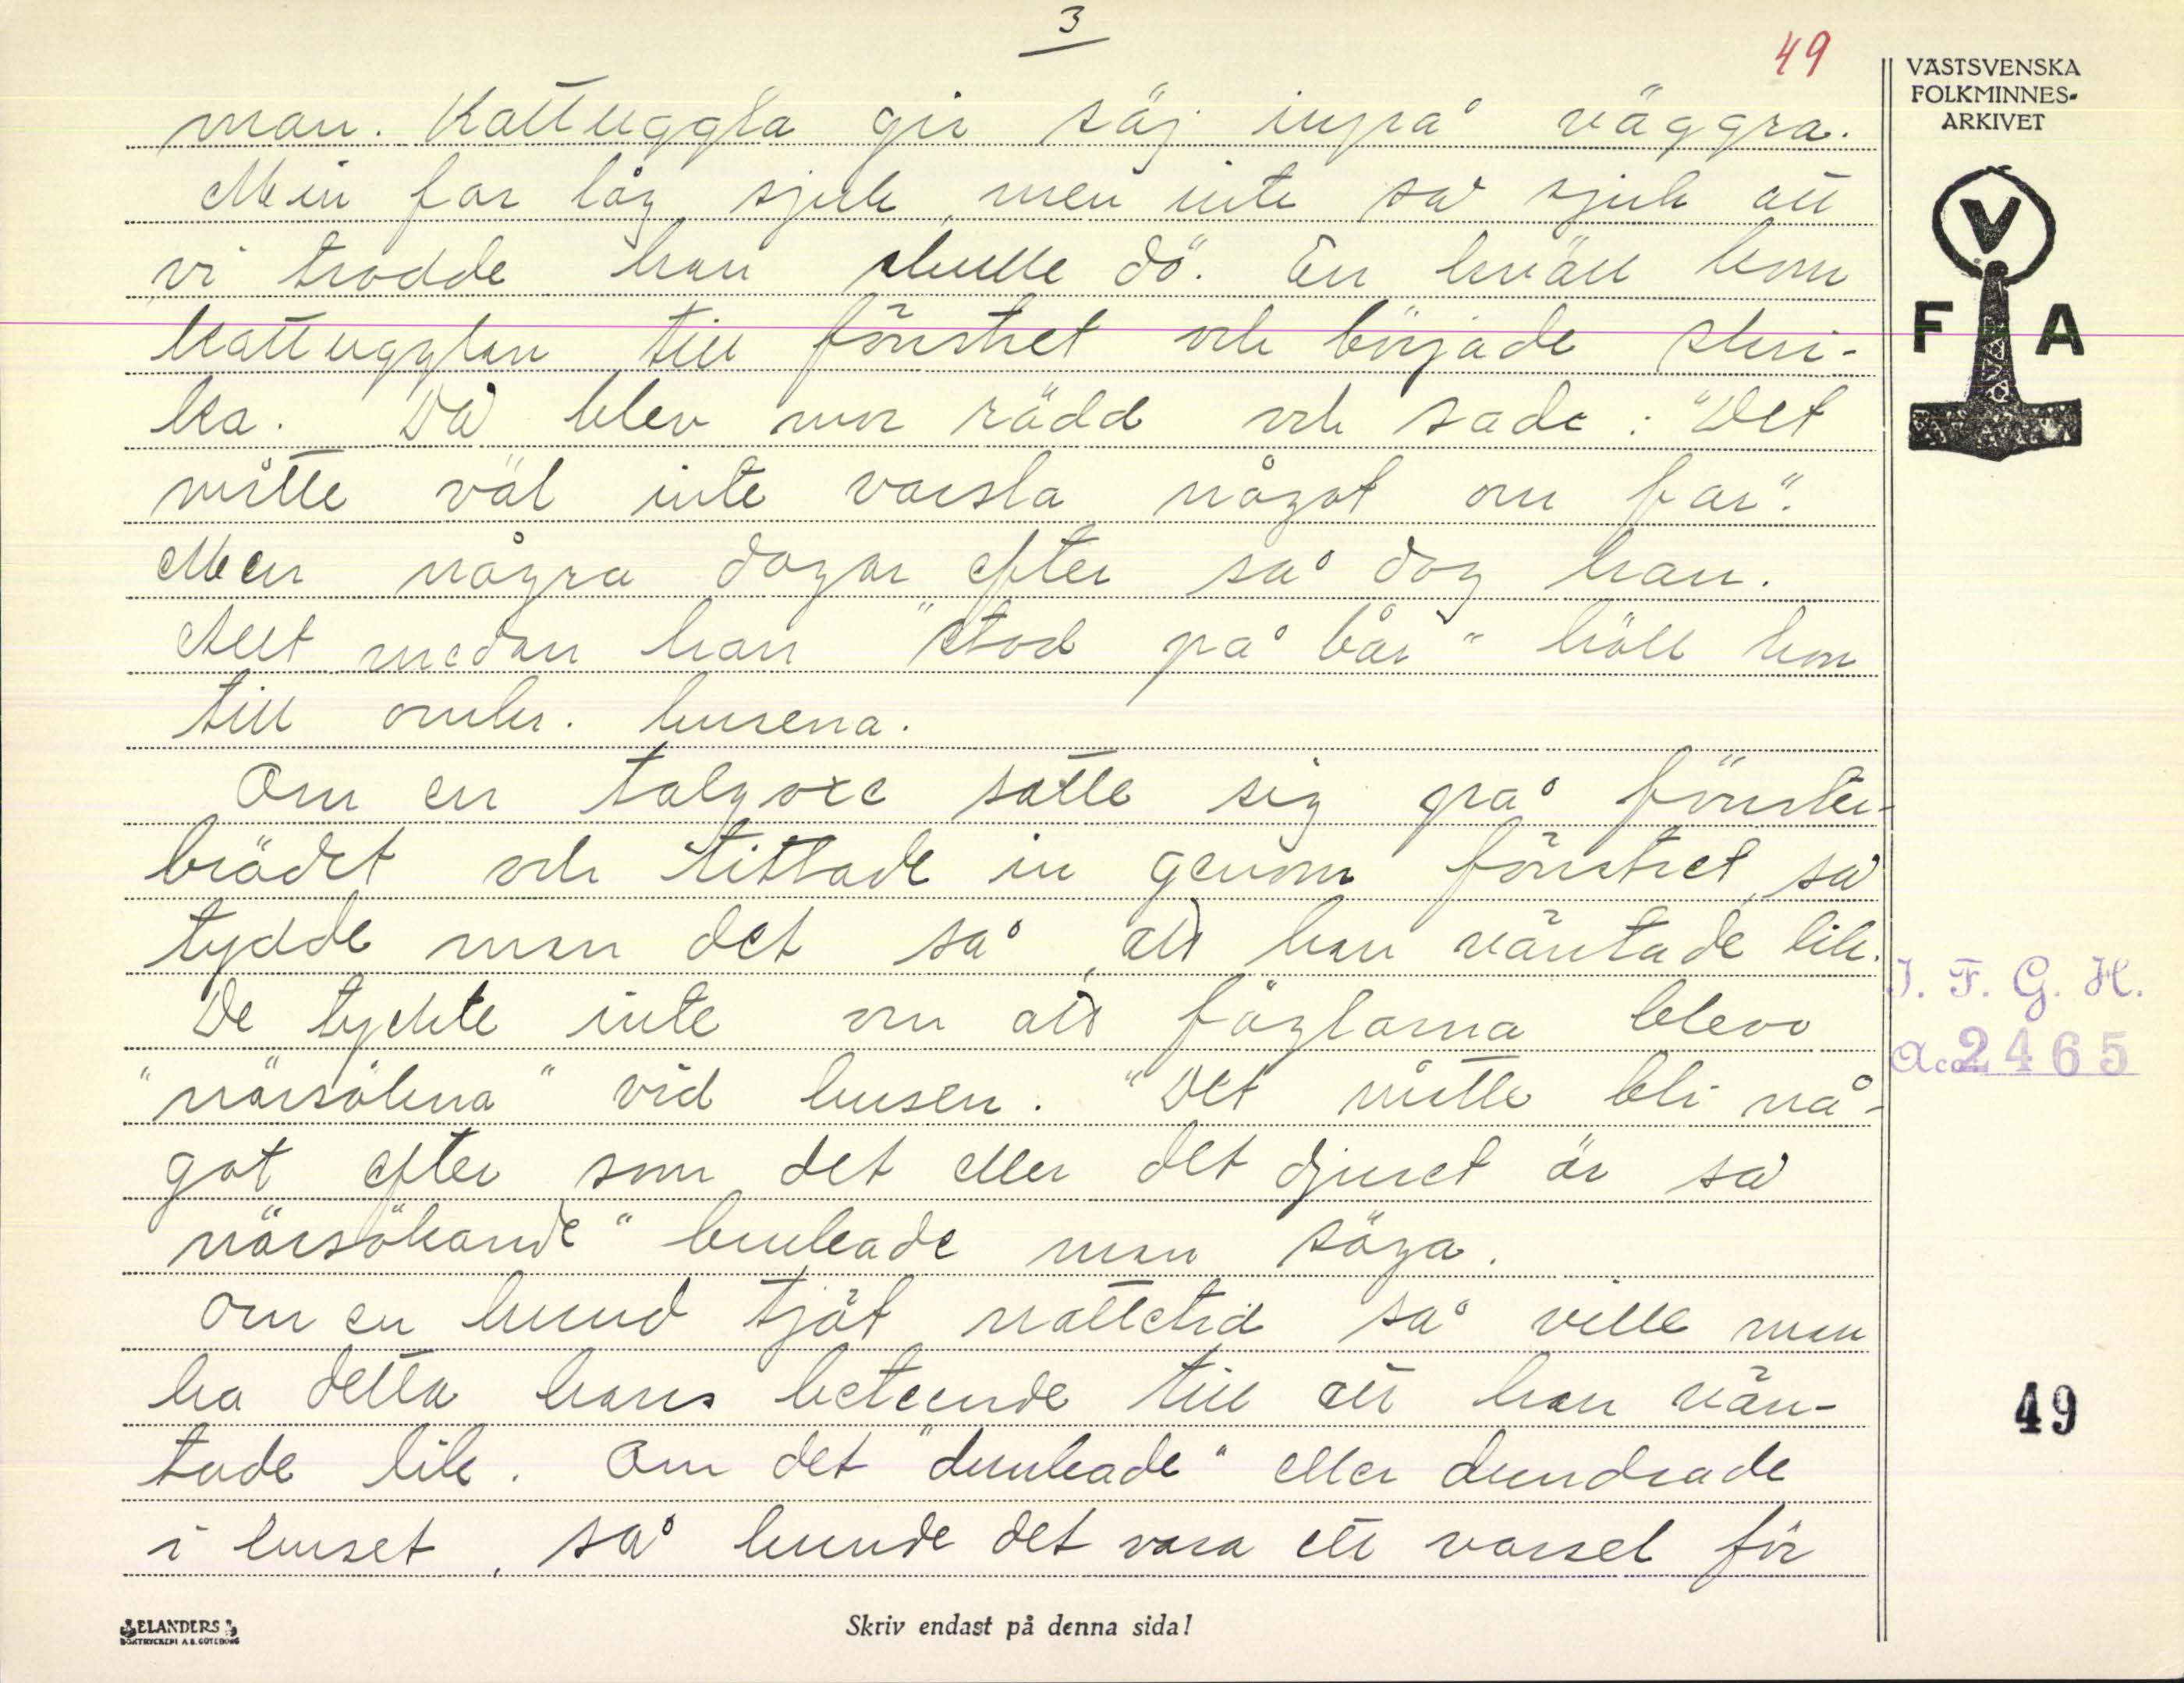 3
49
VÄSTSVENSKA
FOLKMINNES-
ARKIVET
V
F A
man. Kattuggla gir säj inpå väggra.
Min far låg sjuk, men inte så sjuk att
vi trodde han skulle dö. En kväll kom
kattugglan till fönstret och började skri-
ka. Då blev mor rädd och sade: "Det
måtte väl inte varsla något om far".
Men några dagar efter så dog han.
Allt medan han "stod på bår" höll hon
till omkr. husena.
Om en talgoxe satte sig på fönster-
brädet och tittade in genom fönstret, så
tydde man det så, att han väntade lik.
De tyckte inte om att fåglarna blevo
"närsökna" vid husen. "Det måtte bli nå-
got efter som det eller det djuret är så
närsökande" brukade man säga.
Om en hund tjöt nattetid så ville man
ha detta hans beteende till att han vän-
tade lik. Om det "dunkade" eller dundrade
i huset, så kunde det vara ett varsel för
I. F. G. H.
Acc. 2465
49
ELANDERS
BOKTRYCKERI A.B. GÖTEBORG
Skriv endast på denna sida!